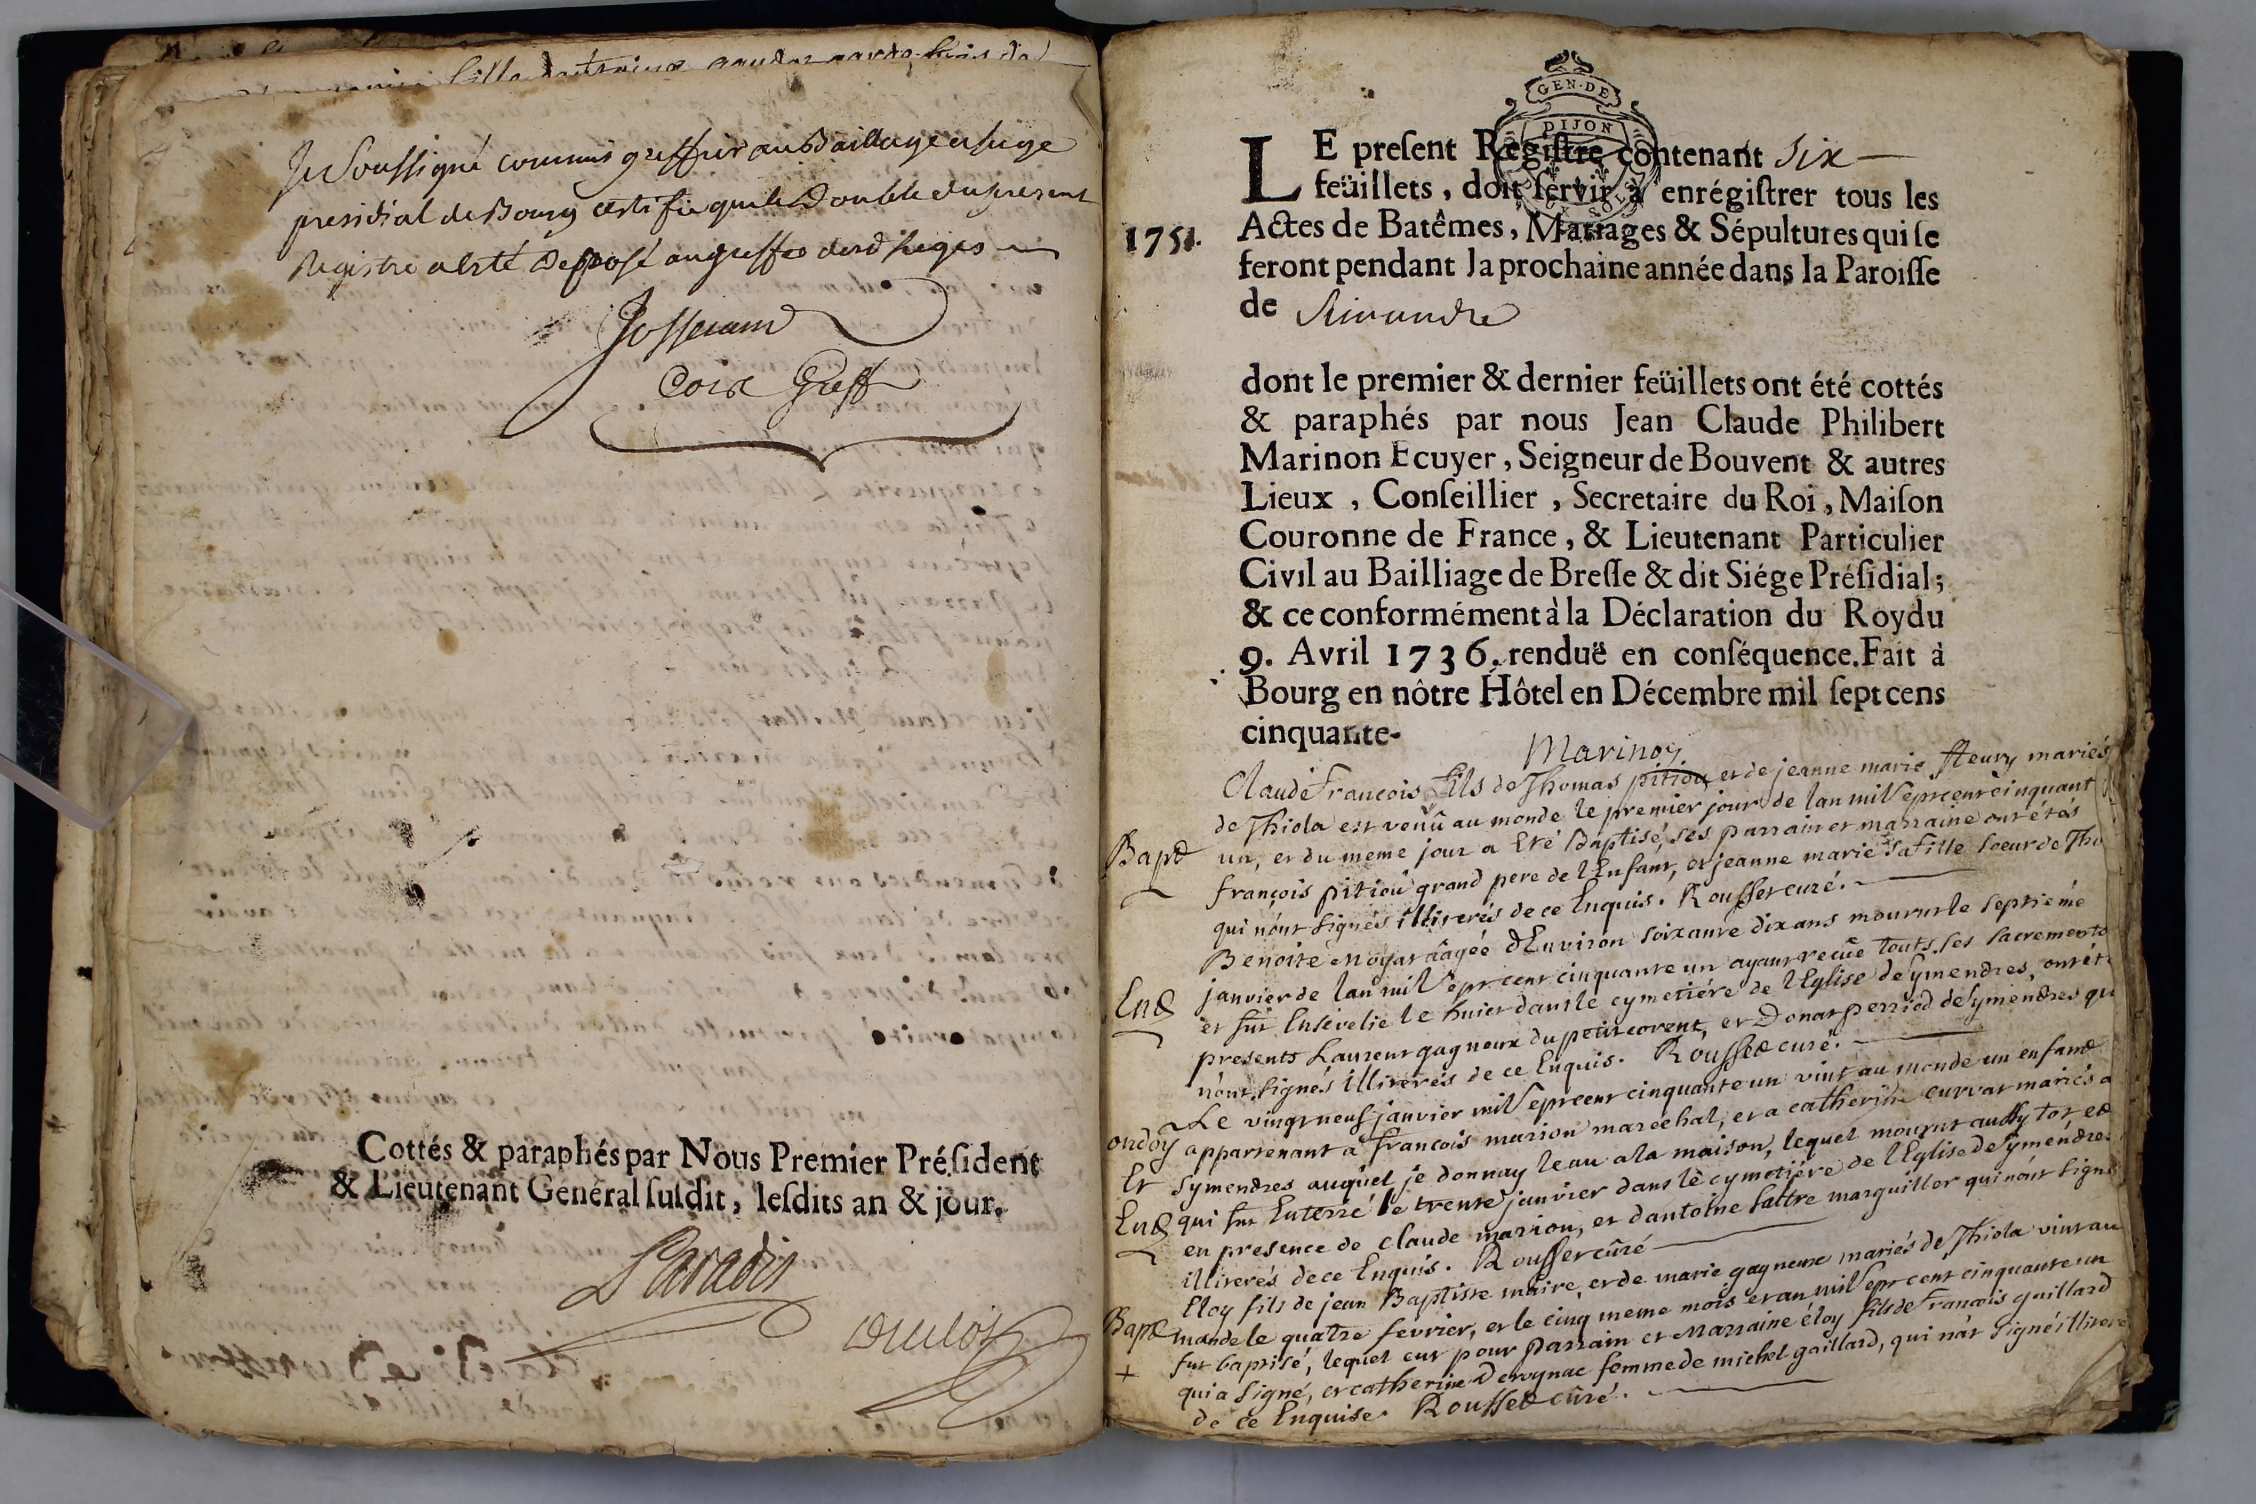 Je Soussigné commis greffier au Bailliage et siege
presidial de Bourg certifie que le Double du present
Registre a esté Deposé au greffe desd sieges
Josserand
Greff
Cottés & paraphés par Nous Premier Président
& Lieutenant Général susdit, lesdits an & jour.
Paradis
GEN·DE
DIJON
LE preſent Regiſtre contenant six
feüillets, doit ſervir à enrégiſtrer tous les
1751.
Actes de Batêmes, Mariages & Sépultures qui ſe
feront pendant la prochaine année dans la Paroiſſe
de Simandre
dont le premier & dernier feüillets ont été cottés
& paraphés par nous Jean Claude Philibert
Marinon Ecuyer, Seigneur de Bouvent & autres
Lieux, Conſeillier, Secretaire du Roi, Maiſon
Couronne de France, & Lieutenant Particulier
Civil au Bailliage de Breſſe & dit Siége Préſidial;
& ce conformément à la Déclaration du Roy du
9. Avril 1736. renduë en conſéquence. Fait à
Bourg en nôtre Hôtel en Décembre mil ſept cens
cinquante-
Marinon
Claude François fils de Thomas pitiou et de jeanne marie fleury mariés
de Thiola est venû au monde le premier jour de lan mil sept cent cinquant
Bapt
un, et du meme jour a été Baptisé, ses parrain et marraine ont étés
françois pitiou grand pere de lEnfant, et jeanne marie sa fille soeur de Tho
qui n'ont signés illiterés de ce Enquis. Rousset curé.
Benoite Moyat âagée dEnviron soixante dix ans mourut le septiéme
janvier de lan mil sept cent cinquante un ayant recüe touts ses sacrements
Ent
et fut Ensevelie le huit dans le cymetiére de lEglise de symendres, ont ét
presents Laurent gagneux du petit corent, et Donat perried de symendres qu
n'ont signés illiterés de ce Enquis. Rousset curé.
Le vingt neuf janvier mil sept cent cinquante un vint au monde un enfant
ondoy
appartenant a françois marion marechal, et a catherine curvat mariés a
Et
symendres auquel je donnay leau a la maison, lequel mourut aussy tot et
Ent
qui fut Enterré le trente janvier dans le cymetiére de lEglise de symendres
en presence de claude marion, et dantoine sattre marguiller qui n'ont signé
illiterés de ce Enquis. Rousset cûré
Eloy fils de jean Baptiste maire, et de marie gagneux mariés de Thiola vint au
Bapt
monde le quatre fevrier, et le cinq meme mois et an mil sept cent cinquante un
+
fut baptisé, lequel eut pour parrain et marraine éloy fils de françois gaillard
qui a signé, et catherine Derognat femme de michel gaillard, qui n'at signé illiteré
de ce Enquise. Rousset cûré.